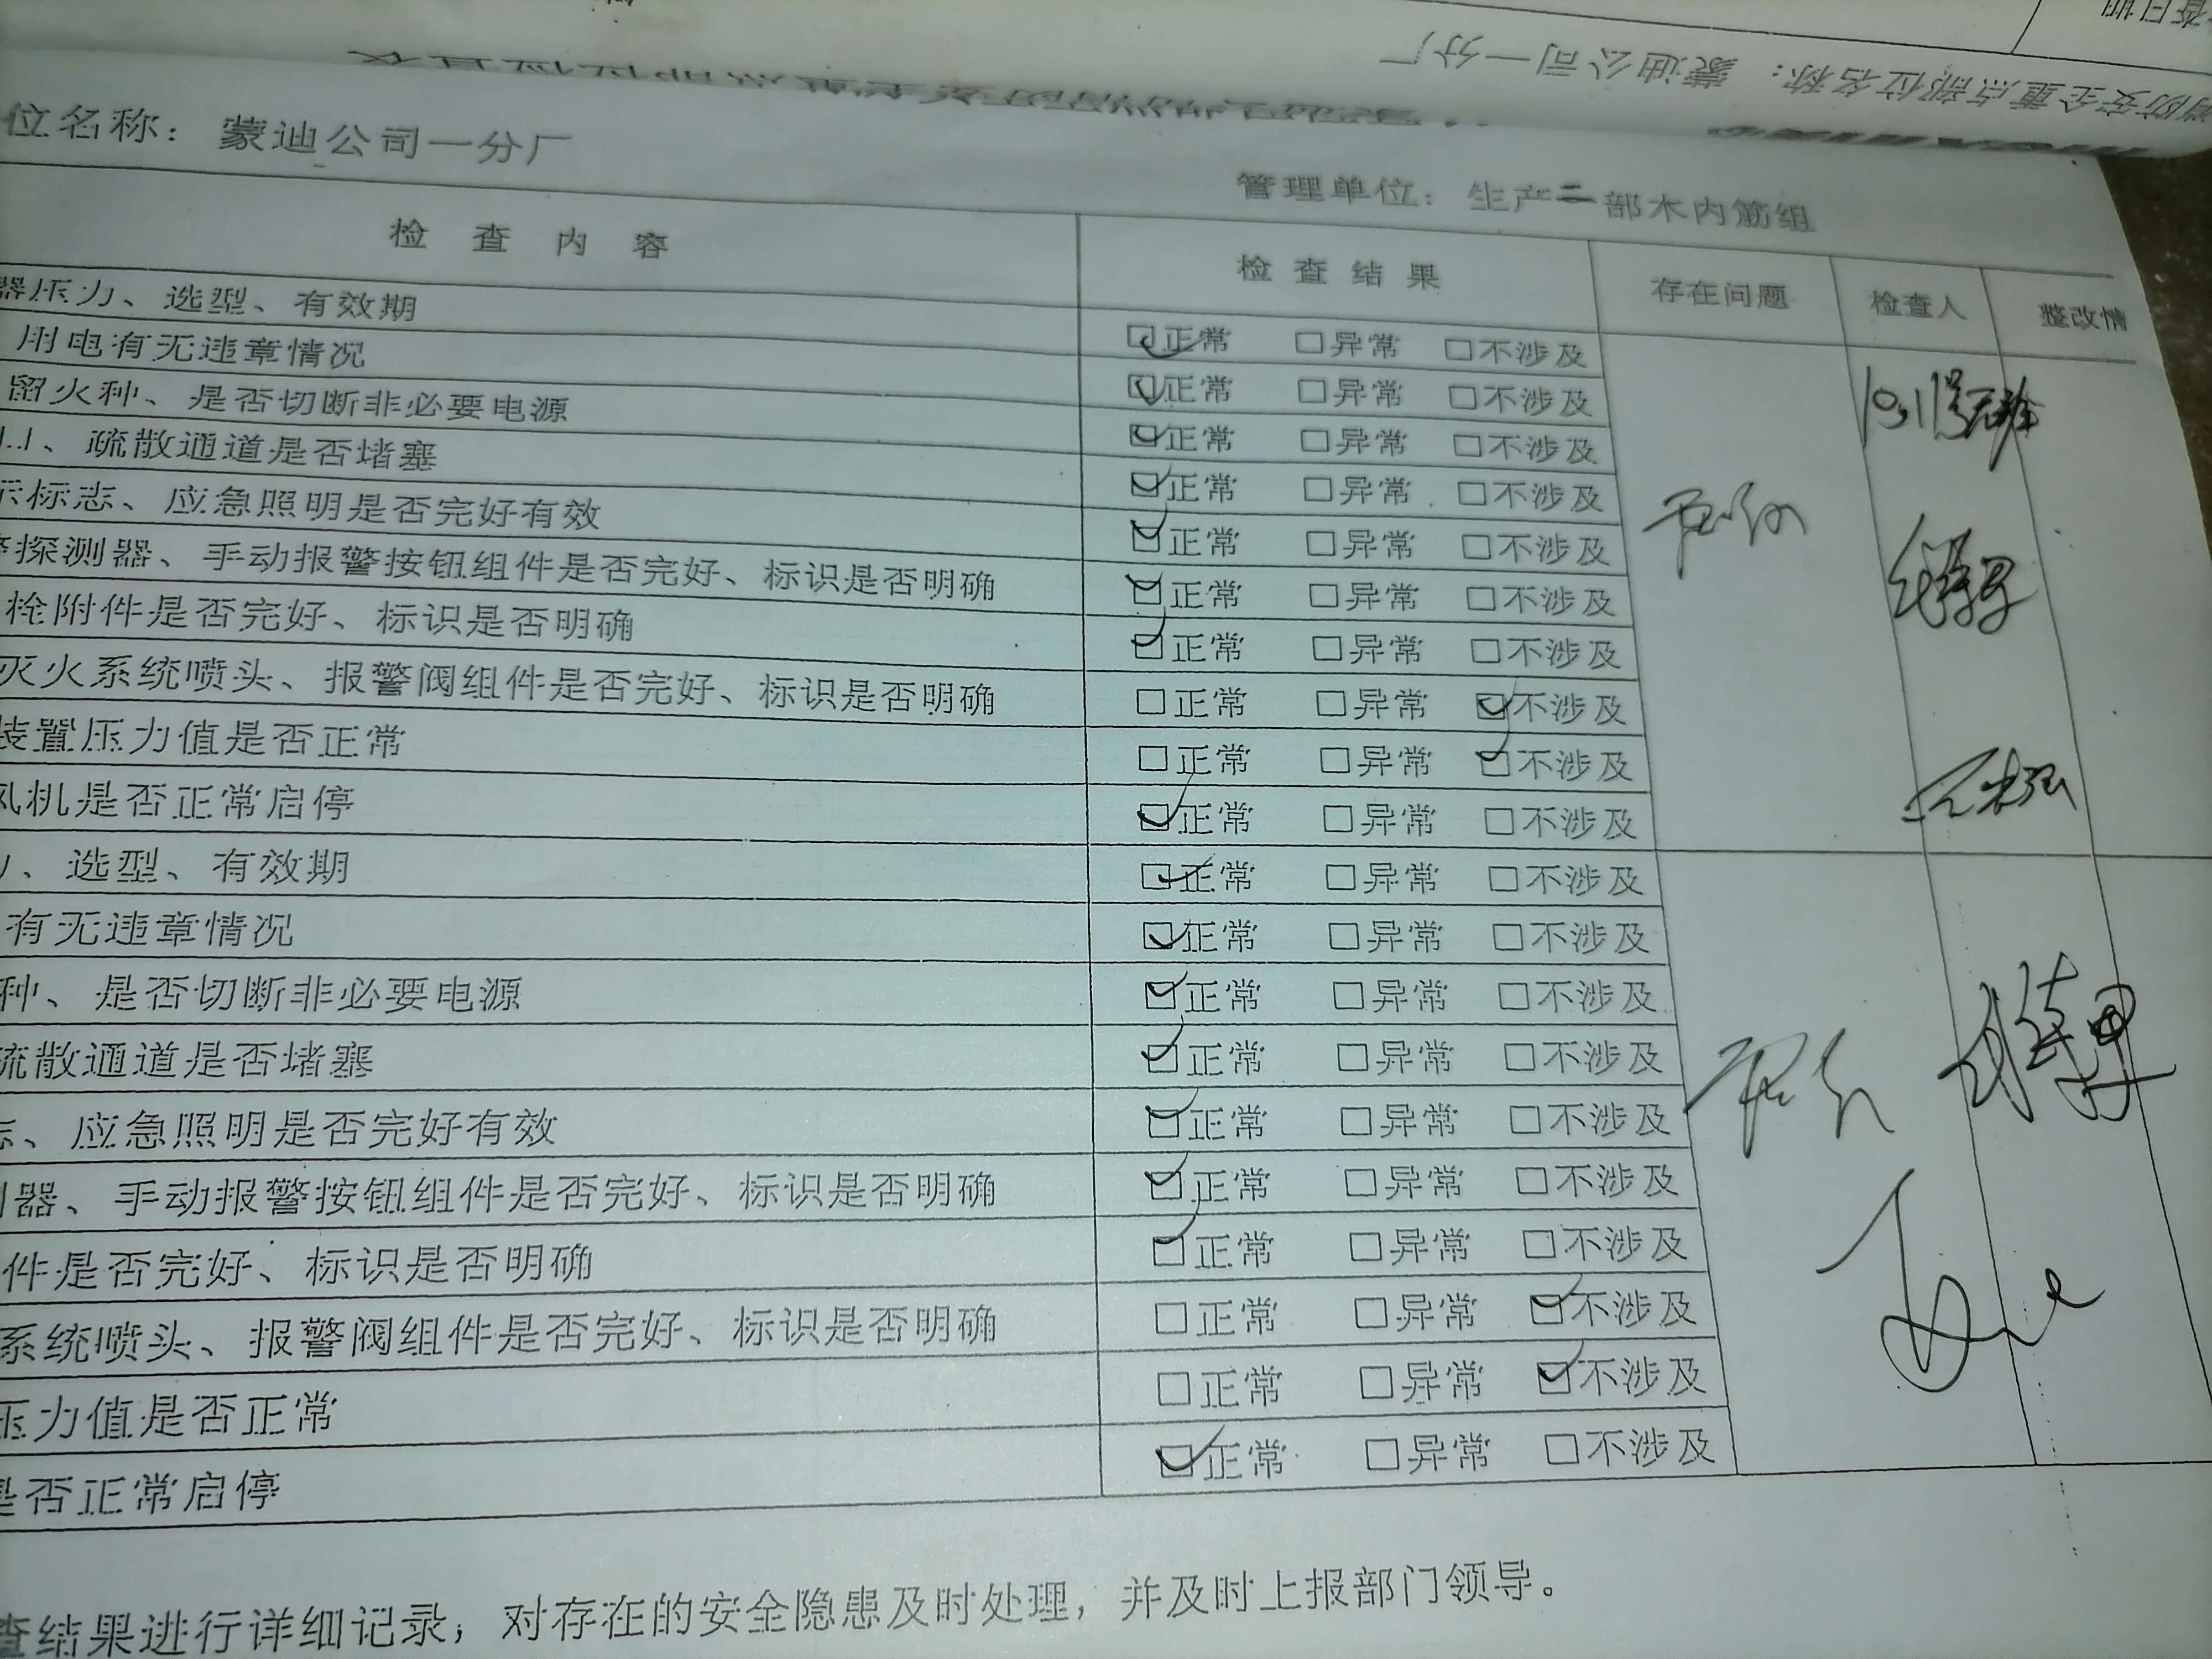 消防安全重点部位名称：蒙迪公司一分厂
位名称：蒙迪公司一分厂
管理单位：生产二部木内筋组
检查内容 检查结果 存在问题 检查人 整改情
器压力、选型、有效期 ☑正常 □异常 □不涉及
用电有无违章情况 ☑正常 □异常 □不涉及
留火种、是否切断非必要电源 ☑正常 □异常 □不涉及
口、疏散通道是否堵塞 ☑正常 □异常 □不涉及
示标志、应急照明是否完好有效 ☑正常 □异常 □不涉及
探测器、手动报警按钮组件是否完好、标识是否明确 ☑正常 □异常 □不涉及
栓附件是否完好、标识是否明确 ☑正常 □异常 □不涉及
灭火系统喷头、报警阀组件是否完好、标识是否明确 □正常 □异常 ☑不涉及
装置压力值是否正常 □正常 □异常 ☑不涉及
风机是否正常启停 ☑正常 □异常 □不涉及
、选型、有效期 ☑正常 □异常 □不涉及
有无违章情况 ☑正常 □异常 □不涉及
种、是否切断非必要电源 ☑正常 □异常 □不涉及
疏散通道是否堵塞 ☑正常 □异常 □不涉及
志、应急照明是否完好有效 ☑正常 □异常 □不涉及
器、手动报警按钮组件是否完好、标识是否明确 ☑正常 □异常 □不涉及
件是否完好、标识是否明确 ☑正常 □异常 □不涉及
系统喷头、报警阀组件是否完好、标识是否明确 □正常 □异常 ☑不涉及
压力值是否正常 □正常 □异常 ☑不涉及
是否正常启停 ☑正常 □异常 □不涉及
查结果进行详细记录，对存在的安全隐患及时处理，并及时上报部门领导。